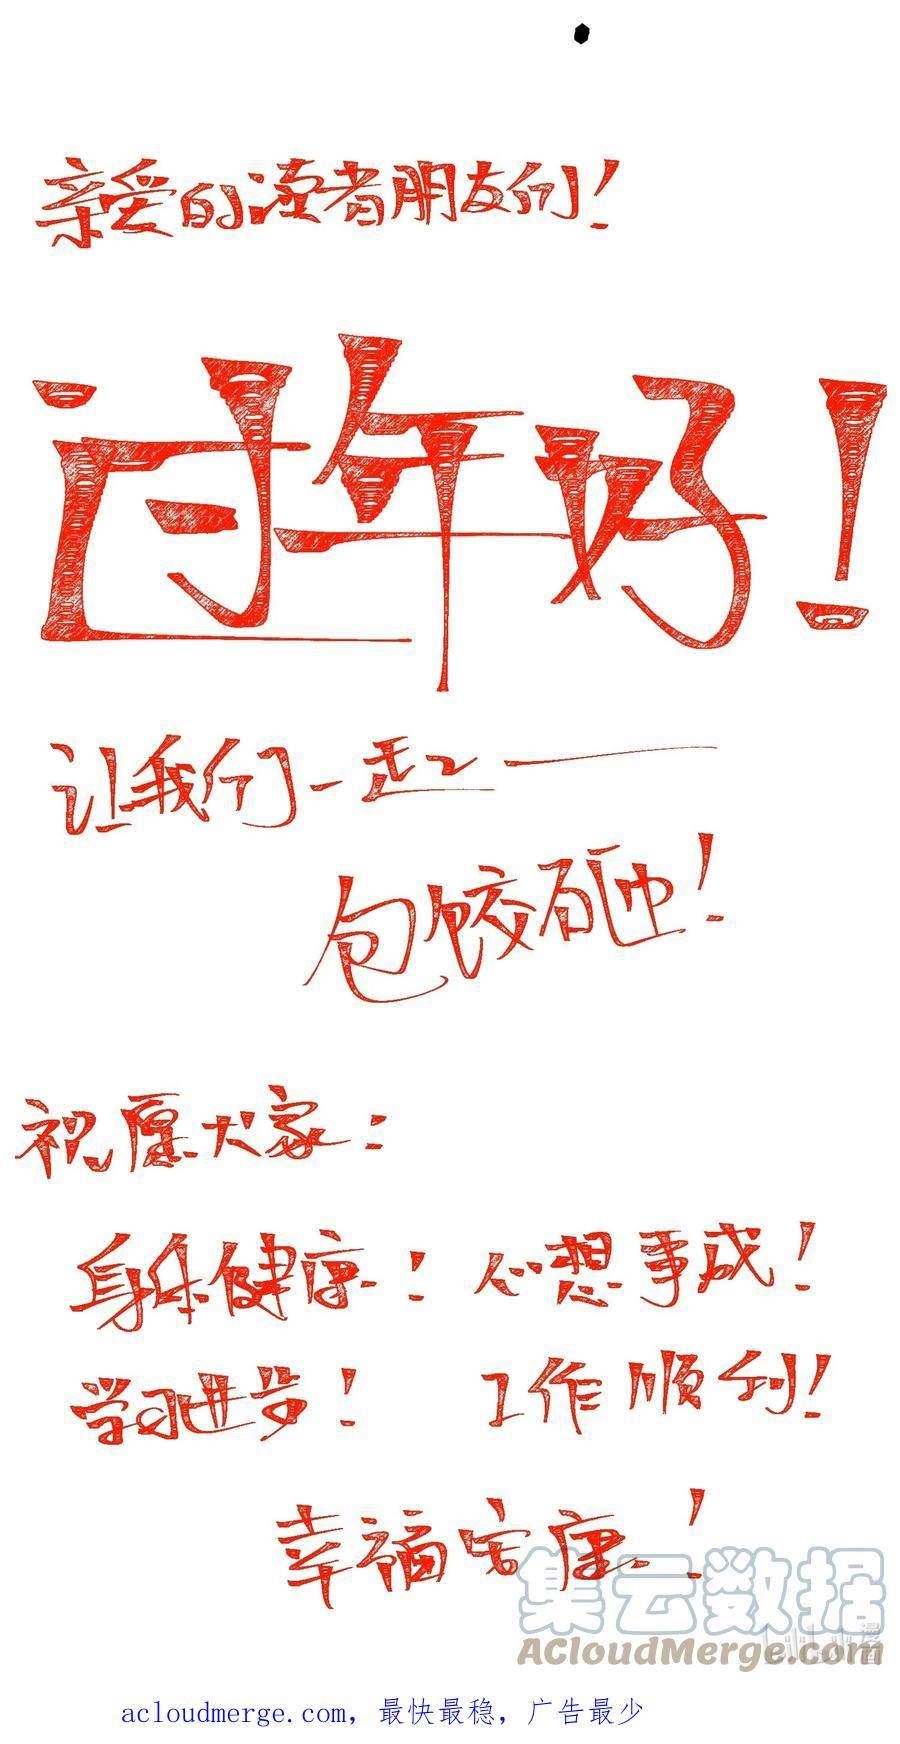 亲爱的读者朋友们！
过年好！
让我们一起——
包饺砸！
祝愿大家：
身体健康！ 心想事成！
学习进步！ 工作顺利！
幸福安康！
集云数据
ACloudMerge.com
bilibili漫画
acloudmerge.com, 最快最稳, 广告最少